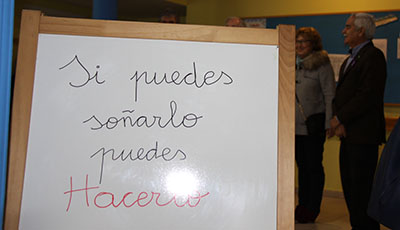 Si puedes
soñarlo
puedes
Hacerlo